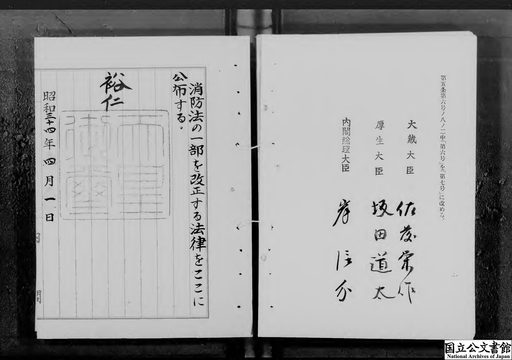 第五条第六号ノ八ノ二中「第六号」を「第七号」に改める。
大蔵大臣 佐藤栄作
厚生大臣 坂田道太
内閣総理大臣 岸信介
消防法の一部を改正する法律をここに
公布する。
裕仁
昭和三十四年四月一日
国立公文書館
National Archives of Japan